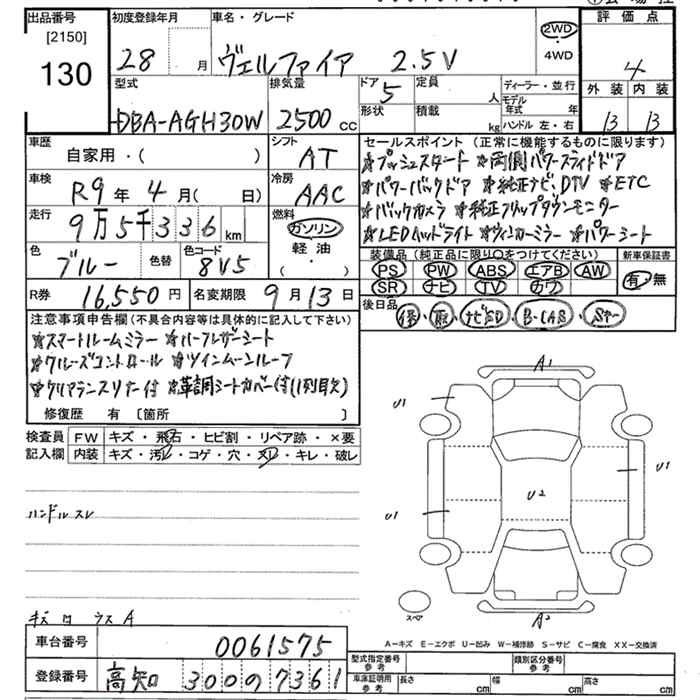 出品番号 初度登録年月 車名・グレード 評価点
[2150] 28 月 ヴェルファイア 2.5V 2WD・4WD 4
130 外装 内装
型式 排気量 ドア 5 定員 人 ディーラー・並行
DBA-AGH30W 2500 cc 形状 積載 kg モデル年式 年 13 13
ハンドル 左・右
車歴 自家用・( ) シフト AT セールスポイント (正常に機能するものに限ります)
☆プッシュスタート ☆両側パワースライドドア
車検 R9年 4月( 日) 冷房 AAC ☆パワーバックドア ☆純正ナビ、DTV ☆ETC
走行 9万5千336 km 燃料 ガソリン ☆バックカメラ ☆純正フリップダウンモニター
軽油 ☆LEDヘッドライト ☆ウィンカーミラー ☆パワーシート
色 ブルー 色替 色コード 8V5 ( ・ ) 装備品 (純正品に限り○をつけてください) 新車保証書
PS PW ABS エアB AW 有・無
R券 16,550円 名変期限 9月13日 SR ナビ TV カワ
後日品 保・取・ナビSD・B-CAS・スペアー
注意事項申告欄 (不具合内容等は具体的に記入して下さい)
☆スマートルームミラー ☆ハーフレザーシート
☆クルーズコントロール ☆ツインムーンルーフ
☆クリアランスソナー付 ☆革調シートカバー付(1列目欠)
修復歴 有 〔箇所 〕
検査員 FW キズ・飛石・ヒビ割・リペア跡・×要
記入欄 内装 キズ・汚レ・コゲ・穴・スレ・キレ・破レ
A1
U1
U1
U2
U1
ハンドルスレ
スペア
A2
A-キズ E-エクボ U-凹み W-補修跡 S-サビ C-腐食 XX-交換済
車台番号 0061575 型式指定番号 参考 類別区分番号 参考
登録番号 高知 300 の 7361 車庫証明用 参考 長さ cm 幅 cm 高さ cm